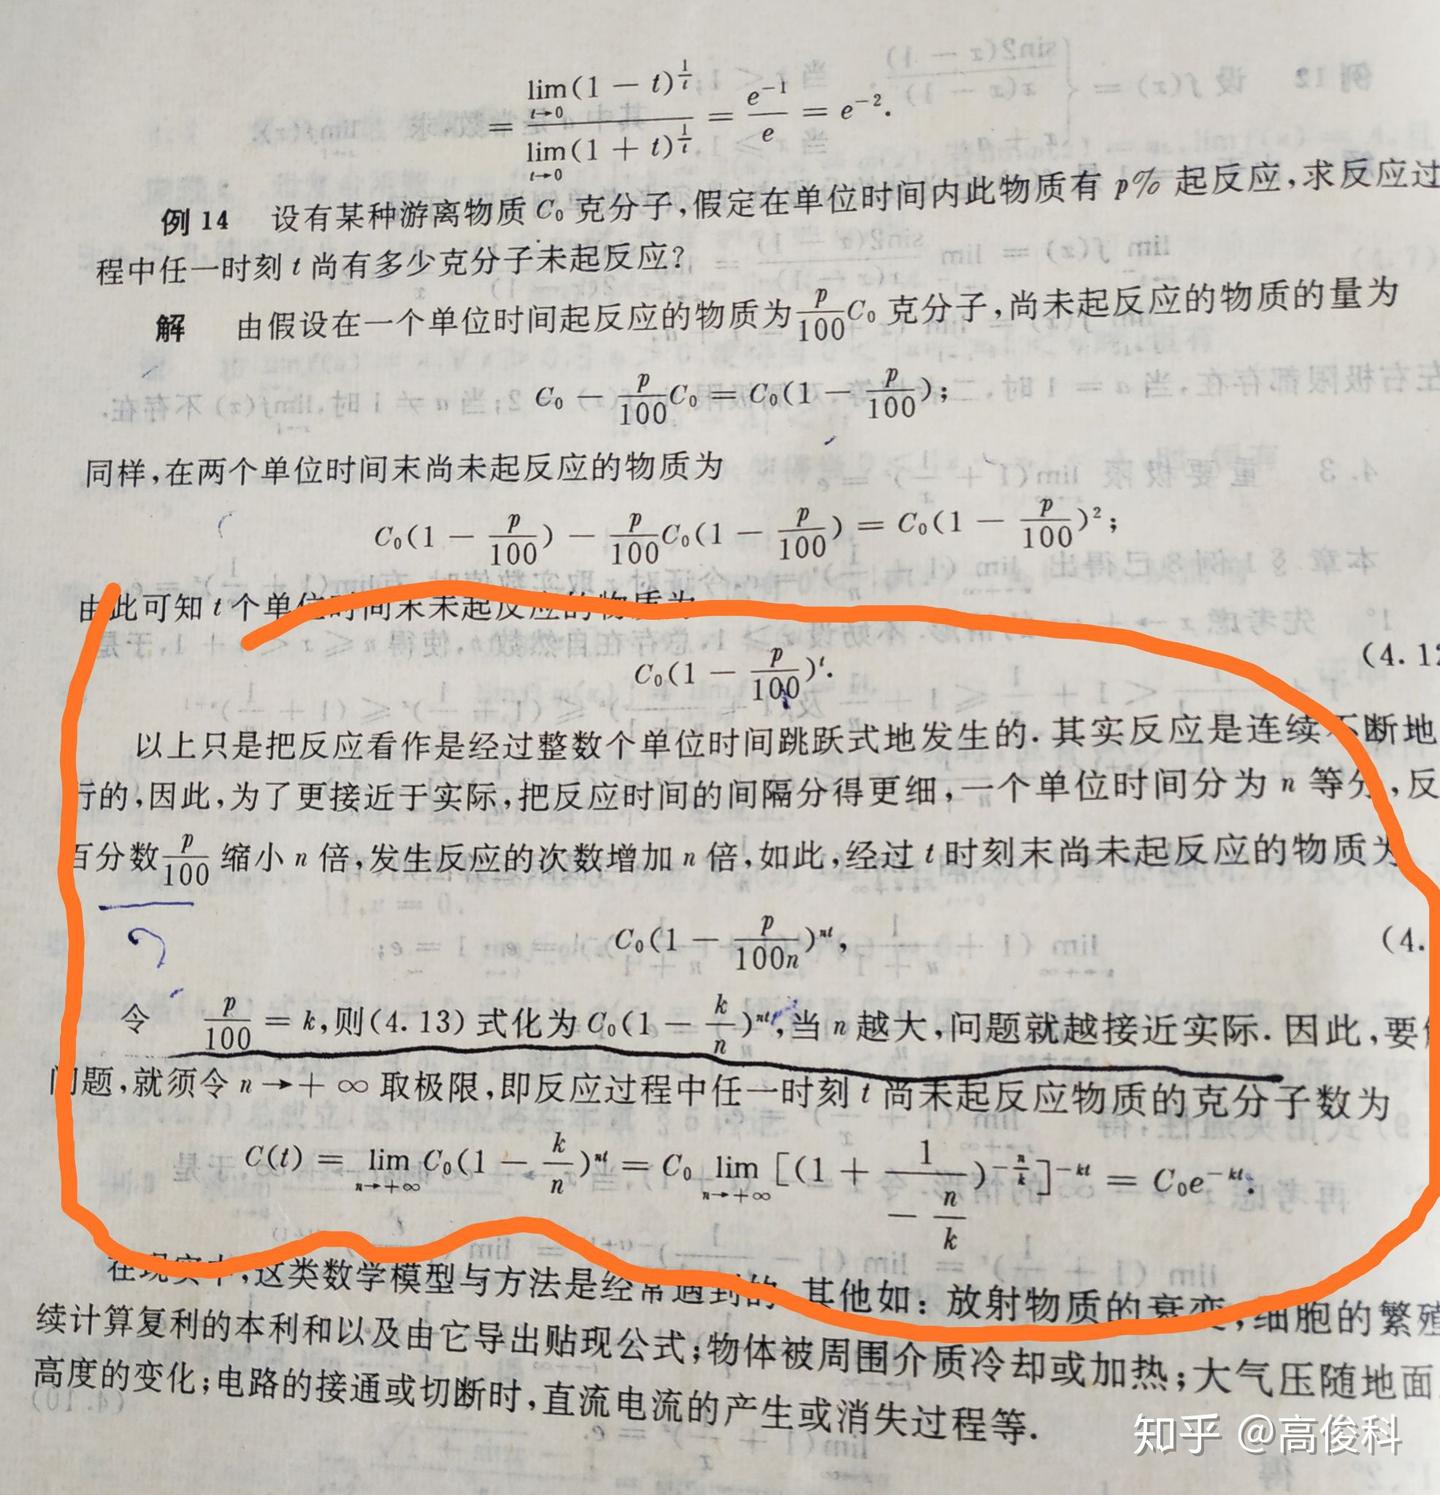 = lim(1 - t)^{1/t} / lim(1 + t)^{1/t} = e^{-1}/e = e^{-2}.
t→0
t→0
例 14 设有某种游离物质 C₀ 克分子,假定在单位时间内此物质有 p% 起反应,求反应过
程中任一时刻 t 尚有多少克分子未起反应?
解 由假设在一个单位时间起反应的物质为 p/100 C₀ 克分子,尚未起反应的物质的量为
C₀ - p/100 C₀ = C₀(1 - p/100);
同样,在两个单位时间末尚未起反应的物质为
C₀(1 - p/100) - p/100 C₀(1 - p/100) = C₀(1 - p/100)²;
由此可知 t 个单位时间末未起反应的物质为
C₀(1 - p/100)^t. (4.12
以上只是把反应看作是经过整数个单位时间跳跃式地发生的. 其实反应是连续不断地
行的,因此,为了更接近于实际,把反应时间的间隔分得更细,一个单位时间分为 n 等分,反
百分数 p/100 缩小 n 倍,发生反应的次数增加 n 倍,如此,经过 t 时刻末尚未起反应的物质为
C₀(1 - p/100n)^{nt}, (4.
令 p/100 = k,则(4.13) 式化为 C₀(1 - k/n)^{nt},当 n 越大,问题就越接近实际. 因此,要
问题,就须令 n → + ∞ 取极限,即反应过程中任一时刻 t 尚未起反应物质的克分子数为
C(t) = lim_{n→+∞} C₀(1 - k/n)^{nt} = C₀ lim_{n→+∞} [(1 + 1/(- n/k))^{-n/k}]^{-kt} = C₀e^{-kt}.
在现实中,这类数学模型与方法是经常遇到的. 其他如: 放射物质的衰变,细胞的繁殖
续计算复利的本利和以及由它导出贴现公式;物体被周围介质冷却或加热;大气压随地面
高度的变化;电路的接通或切断时,直流电流的产生或消失过程等.
知乎 @高俊科